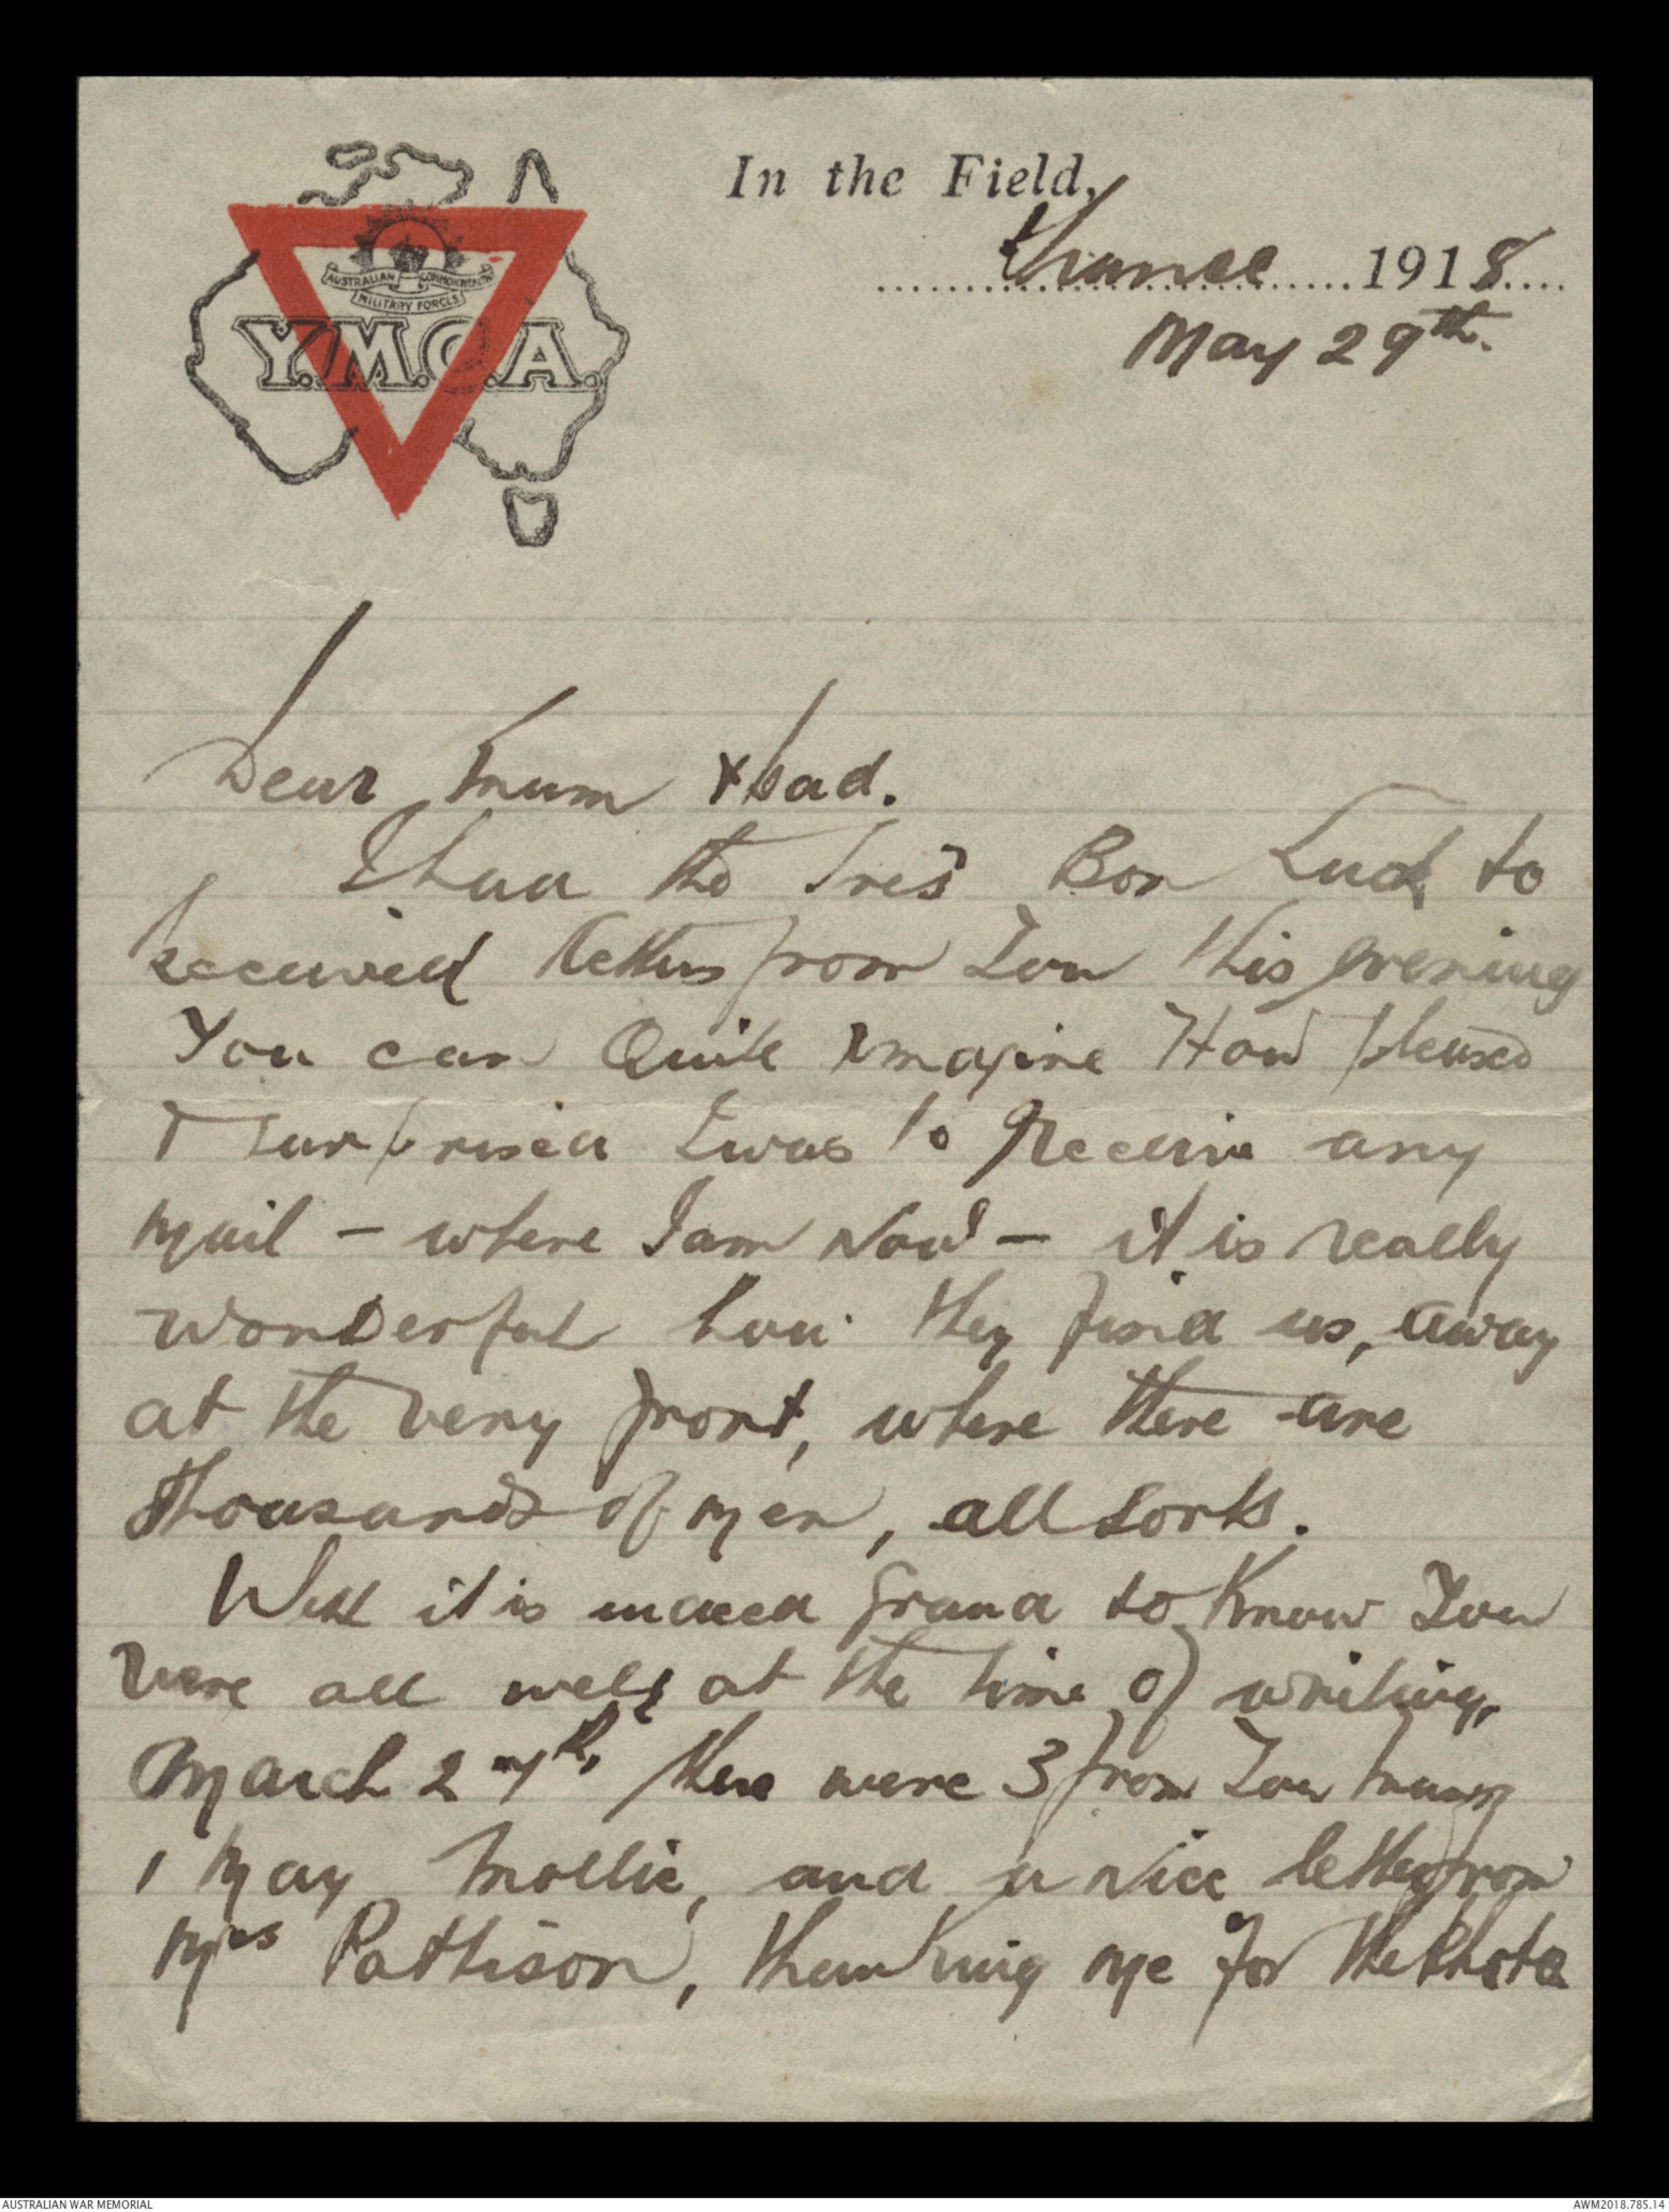 In the Field,
France 1918
May 29th.
AUSTRALIAN COMMONWEALTH
MILITARY FORCES
Y.M.C.A.
Dear Mum & Dad.
I had the Tres Bon Luck to
received letters from You this evening
You can Quite Imagine How pleased
& Surprised I was to Receive any
Mail – where I am Now – it is really
wonderful how they find us, away
at the very front, where there are
thousands of Men, all sorts.
Well it is indeed grand to Know You
were all well, at the time of writing,
March 27th, there were 3 from You Mum
1 May Mollie, and a Nice letter from
Mrs Pattison, thanking me for the Photo
AUSTRALIAN WAR MEMORIAL
AWM2018.785.14